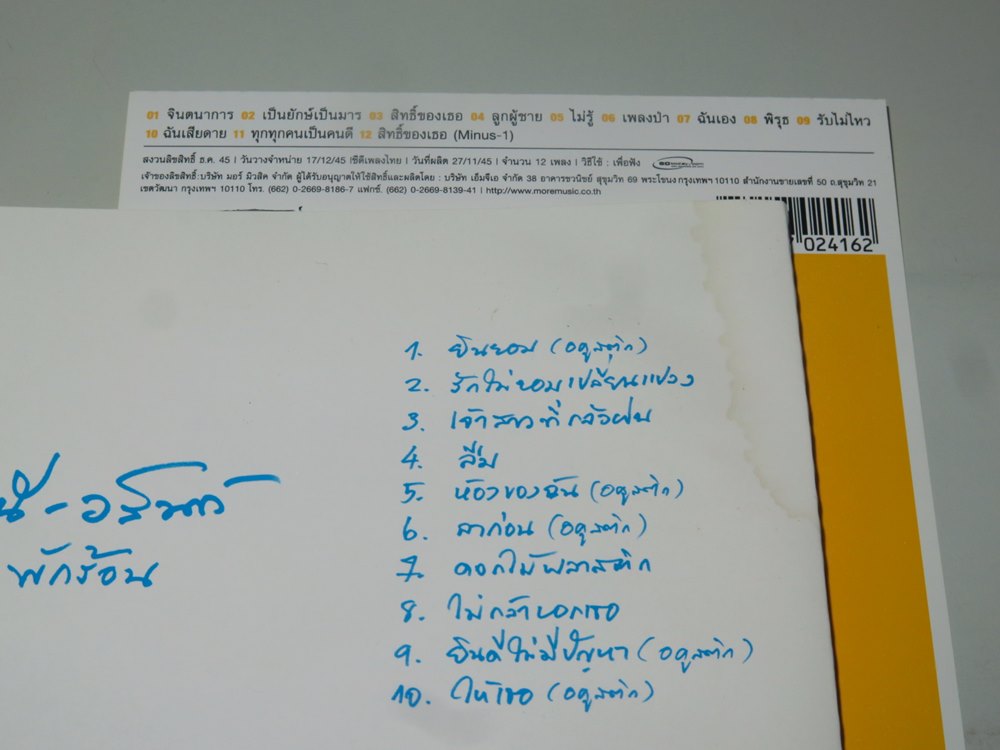 01 จินตนาการ 02 เป็นยักษ์เป็นมาร 03 สิทธิ์ของเธอ 04 ลูกผู้ชาย 05 ไม่รู้ 06 เพลงป่า 07 ฉันเอง 08 พิรุธ 09 รับไม่ไหว
10 ฉันเสียดาย 11 ทุกทุกคนเป็นคนดี 12 สิทธิ์ของเธอ (Minus-1)
สงวนลิขสิทธิ์ ธ.ค. 45 | วันวางจำหน่าย 17/12/45 |ซีดีเพลงไทย | วันที่ผลิต 27/11/45 | จำนวน 12 เพลง | วิธีใช้ : เพื่อฟัง
เจ้าของลิขสิทธิ์ :บริษัท มอร์ มิวสิค จำกัด ผู้ได้รับอนุญาตให้ใช้สิทธิ์และผลิตโดย : บริษัท เอ็มจีเอ จำกัด 38 อาคารชวนิชย์ สุขุมวิท 69 พระโขนง กรุงเทพฯ 10110 สำนักงานขายเลขที่ 50 ถ.สุขุมวิท 21
เขตวัฒนา กรุงเทพฯ 10110 โทร. (662) 0-2669-8186-7 แฟกซ์. (662) 0-2669-8139-41 | http://www.moremusic.co.th
024162
1. ยินยอม (อคูสติก)
2. รักไม่ยอมเปลี่ยนแปลง
3. เจ้าสาวที่กลัวฝน
4. ลืม
5. ห้องของฉัน (อคูสติก)
6. ลาก่อน (อคูสติก)
7. ดอกไม้พลาสติก
8. ไม่กล้าบอกเธอ
9. ยินดีไม่มีปัญหา (อคูสติก)
10. ให้เธอ (อคูสติก)
พักร้อน